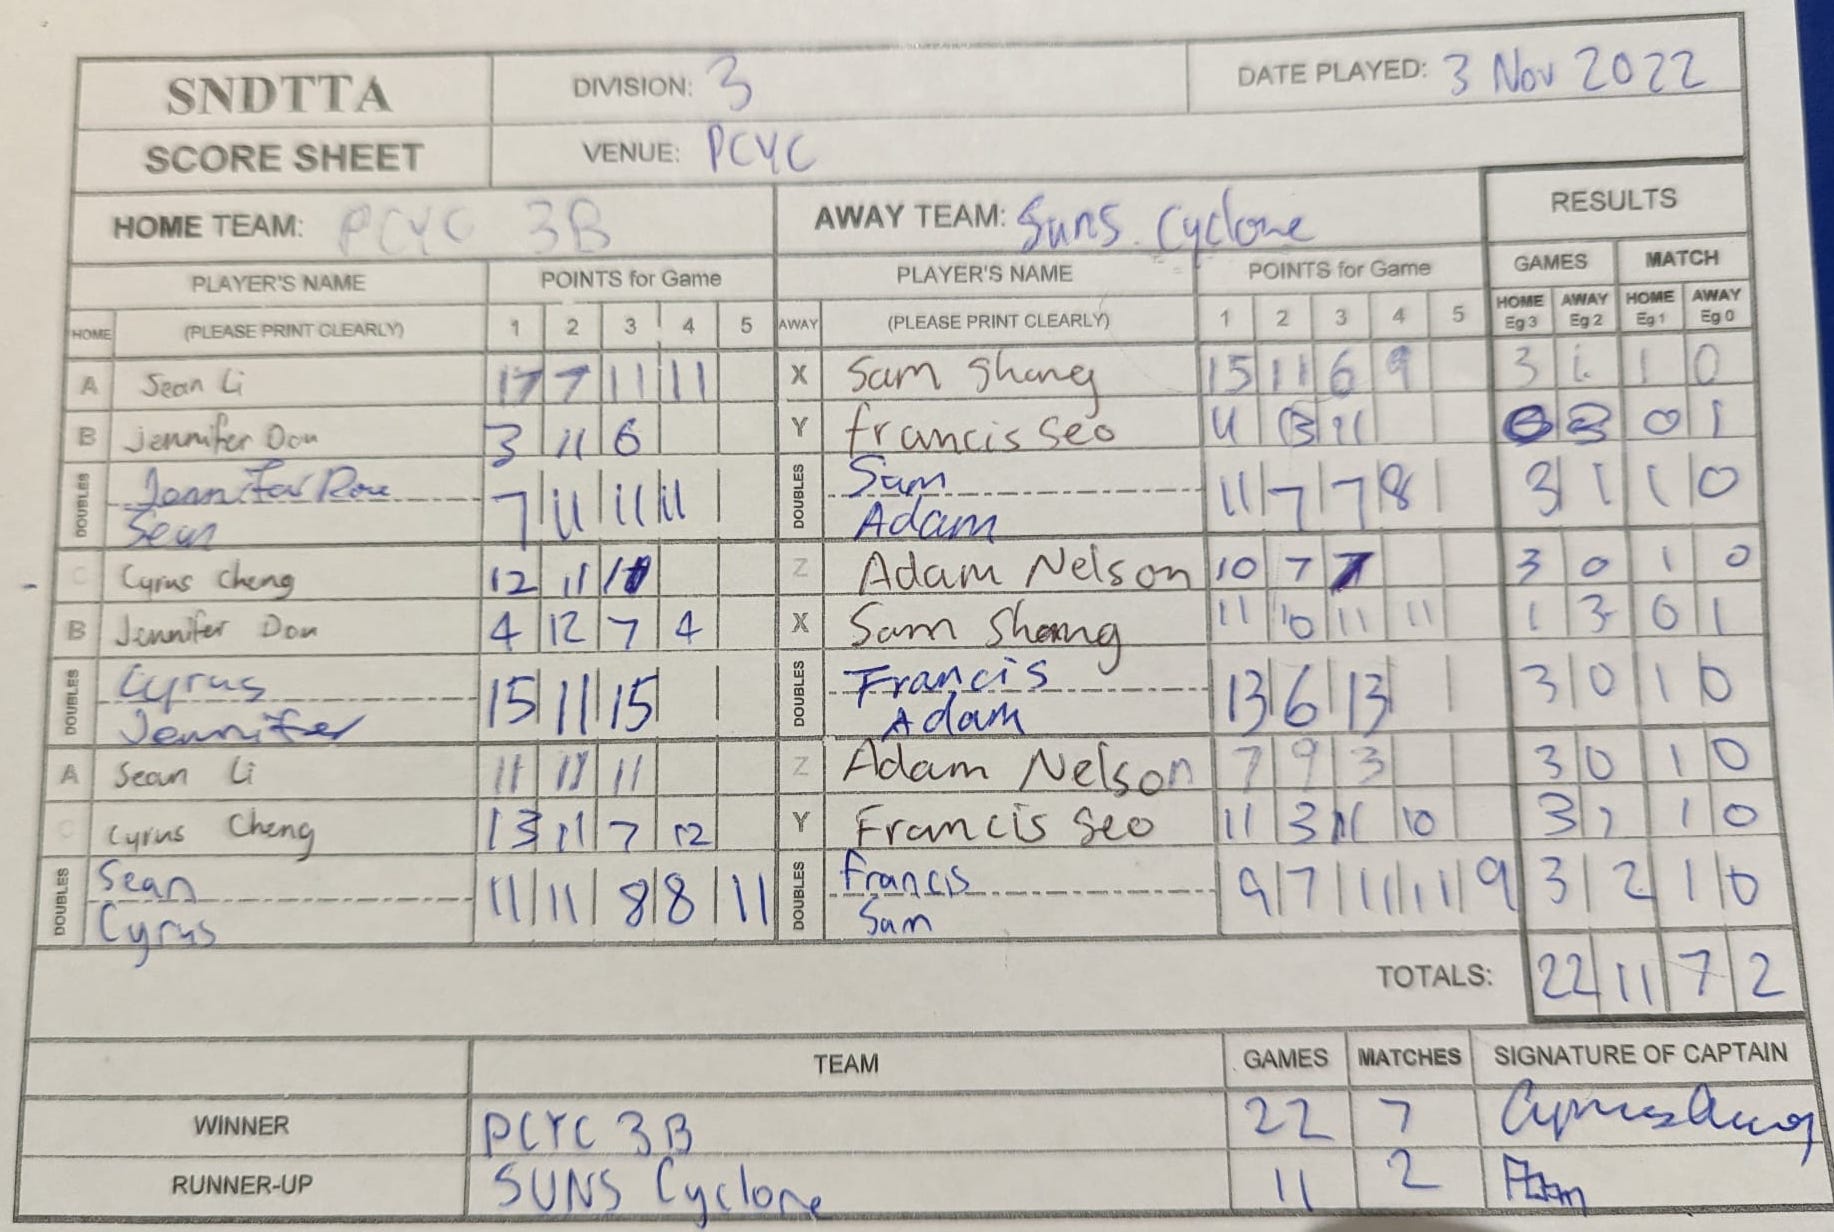 SNDTTA DIVISION: 3 DATE PLAYED: 3 Nov 2022
SCORE SHEET VENUE: PCYC
HOME TEAM: PCYC 3B AWAY TEAM: Suns Cyclone RESULTS
PLAYER'S NAME POINTS for Game PLAYER'S NAME POINTS for Game GAMES MATCH
HOME (PLEASE PRINT CLEARLY) 1 2 3 4 5 AWAY (PLEASE PRINT CLEARLY) 1 2 3 4 5 HOME Eg 3 AWAY Eg 2 HOME Eg 1 AWAY Eg 0
A Sean Li 17 7 11 11 X Sam Shang 15 11 6 9 3 1 1 0
B Jennifer Dou 3 11 6 Y francis Seo 11 13 11 0 3 0 1
DOUBLES Jennifer 7 11 11 11 DOUBLES Sam 11 7 7 8 3 1 1 0
Sean Adam
C Cyrus Cheng 12 11 Z Adam Nelson 10 7 7 3 0 1 0
B Jennifer Dou 4 12 7 4 X Sam Shang 11 10 11 11 1 3 0 1
DOUBLES Cyrus 15 11 15 DOUBLES Francis 13 6 13 3 0 1 0
Jennifer Adam
A Sean Li 11 11 11 Z Adam Nelson 7 9 3 3 0 1 0
C Cyrus Cheng 13 11 7 12 Y Francis Seo 11 3 11 10 3 1 0
DOUBLES Sean 11 11 8 8 11 DOUBLES Francis 9 7 11 11 9 3 2 1 0
Cyrus Sam
TOTALS: 22 11 7 2
TEAM GAMES MATCHES SIGNATURE OF CAPTAIN
WINNER PCYC 3B 22 7
RUNNER-UP SUNS Cyclone 11 2